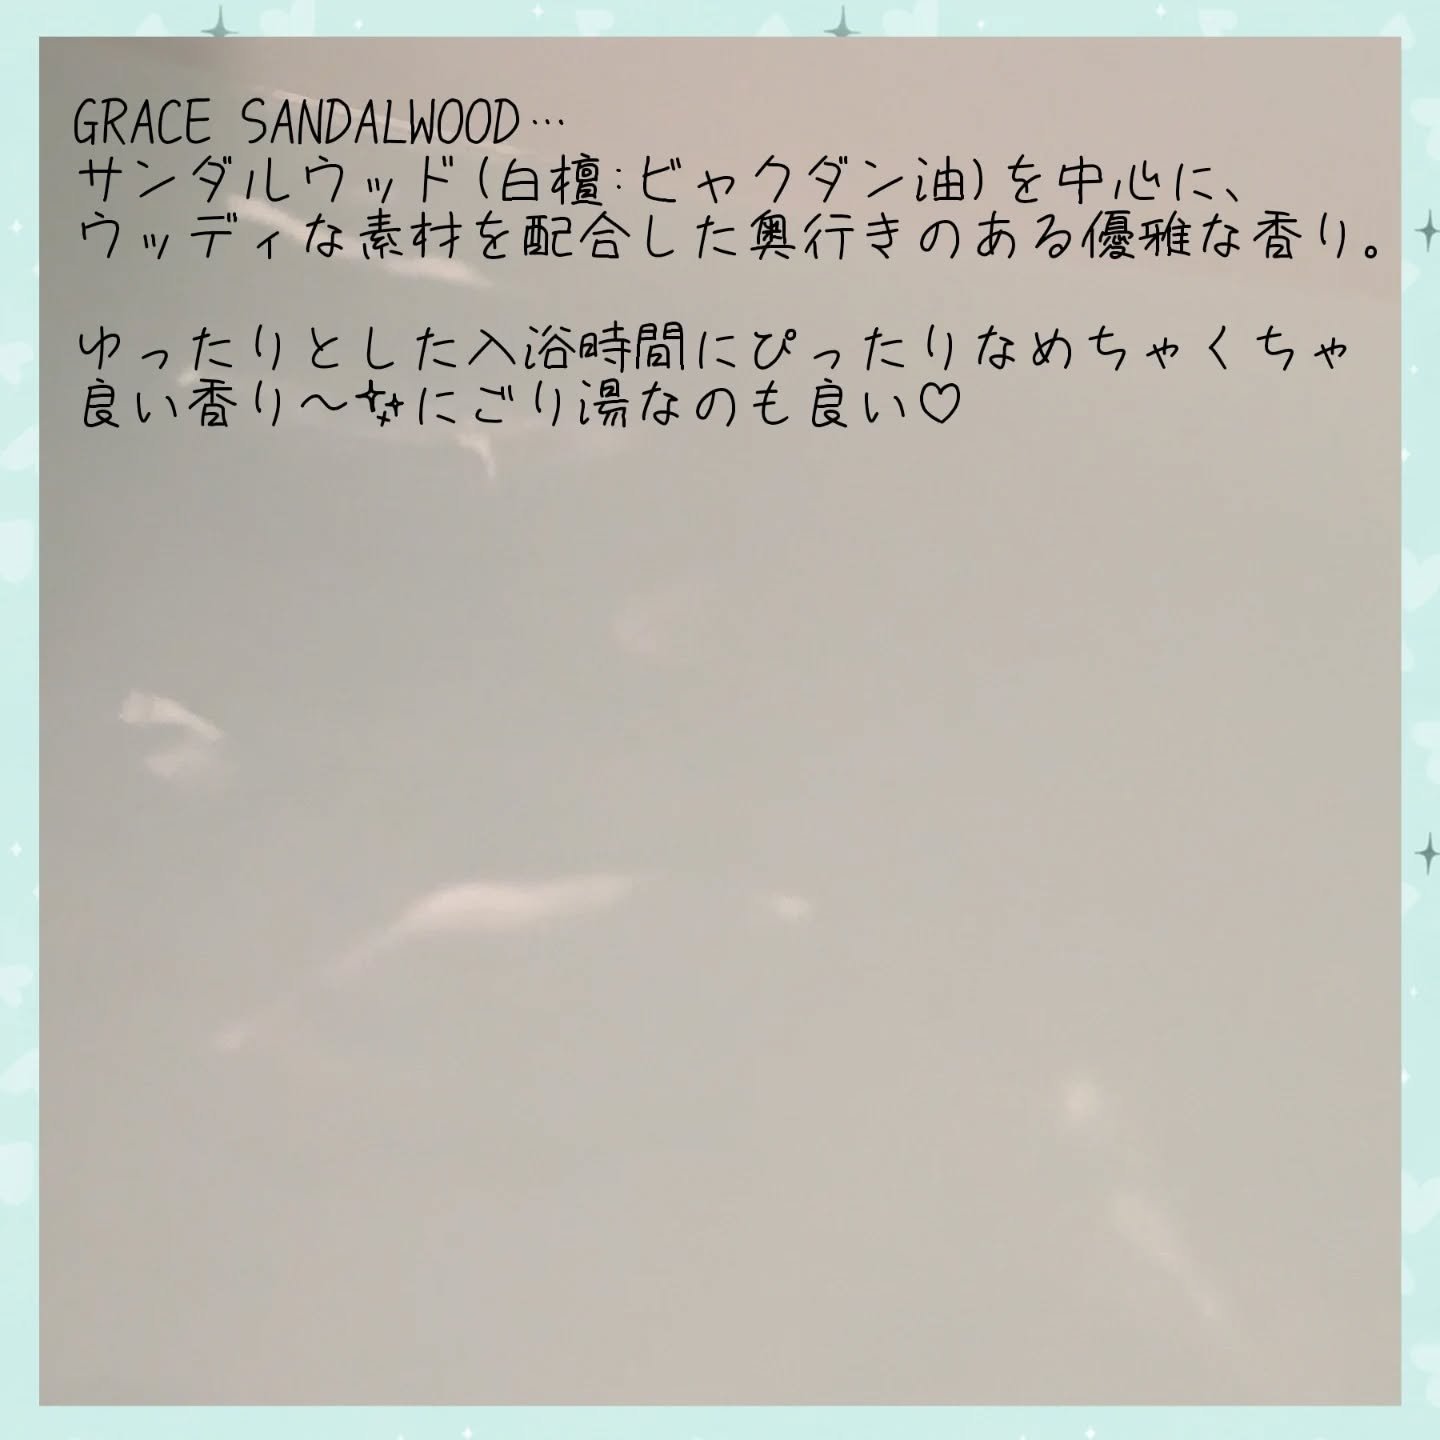 GRACE SANDALWOOD…
サンダルウッド(白檀:ビャクダン油)を中心に、
ウッディな素材を配合した奥行きのある優雅な香り。
ゆったりとした入浴時間にぴったりなめちゃくちゃ
良い香り～✨にごり湯なのも良い♡